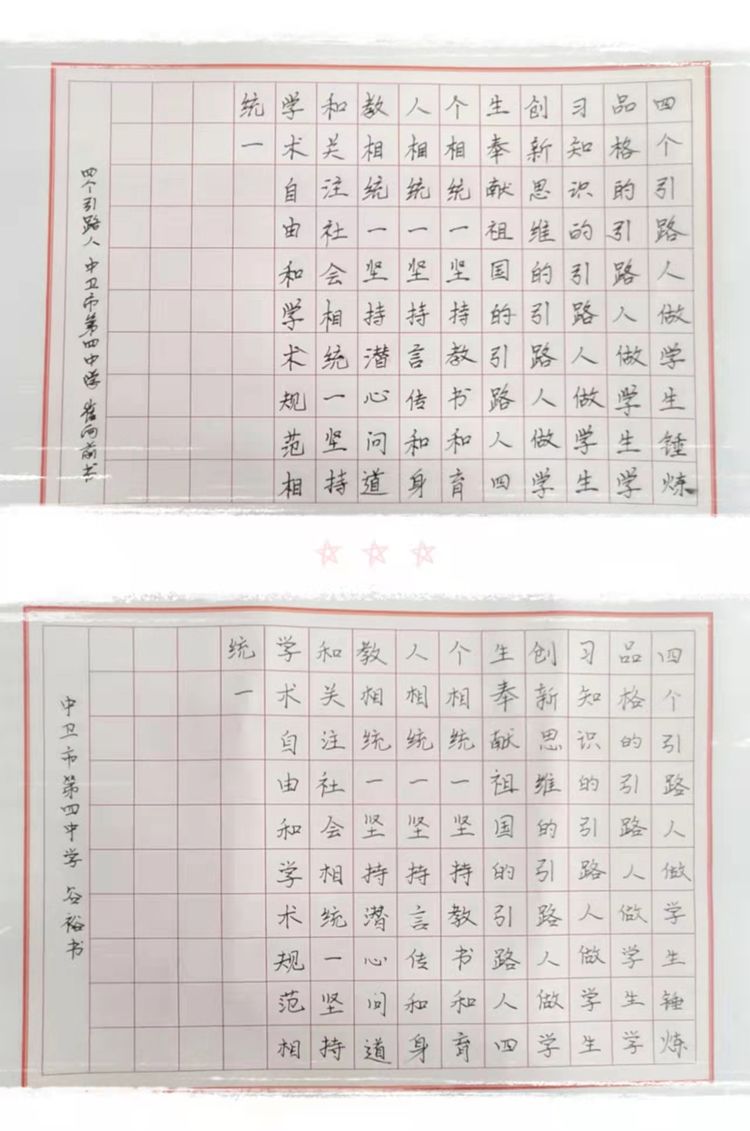 四个引路人做学生锤炼
品格的引路人做学生学
习知识的引路人做学生
创新思维的引路人做学
生奉献祖国的引路人四
个相统一坚持教书和育
人相统一坚持言传和身
教相统一坚持潜心问道
和关注社会相统一坚持
学术自由和学术规范相
统一
四个引路人 中卫市第四中学 崔向前书
四个引路人做学生锤炼
品格的引路人做学生学
习知识的引路人做学生
创新思维的引路人做学
生奉献祖国的引路人四
个相统一坚持教书和育
人相统一坚持言传和身
教相统一坚持潜心问道
和关注社会相统一坚持
学术自由和学术规范相
统一
中卫市第四中学 谷裕书